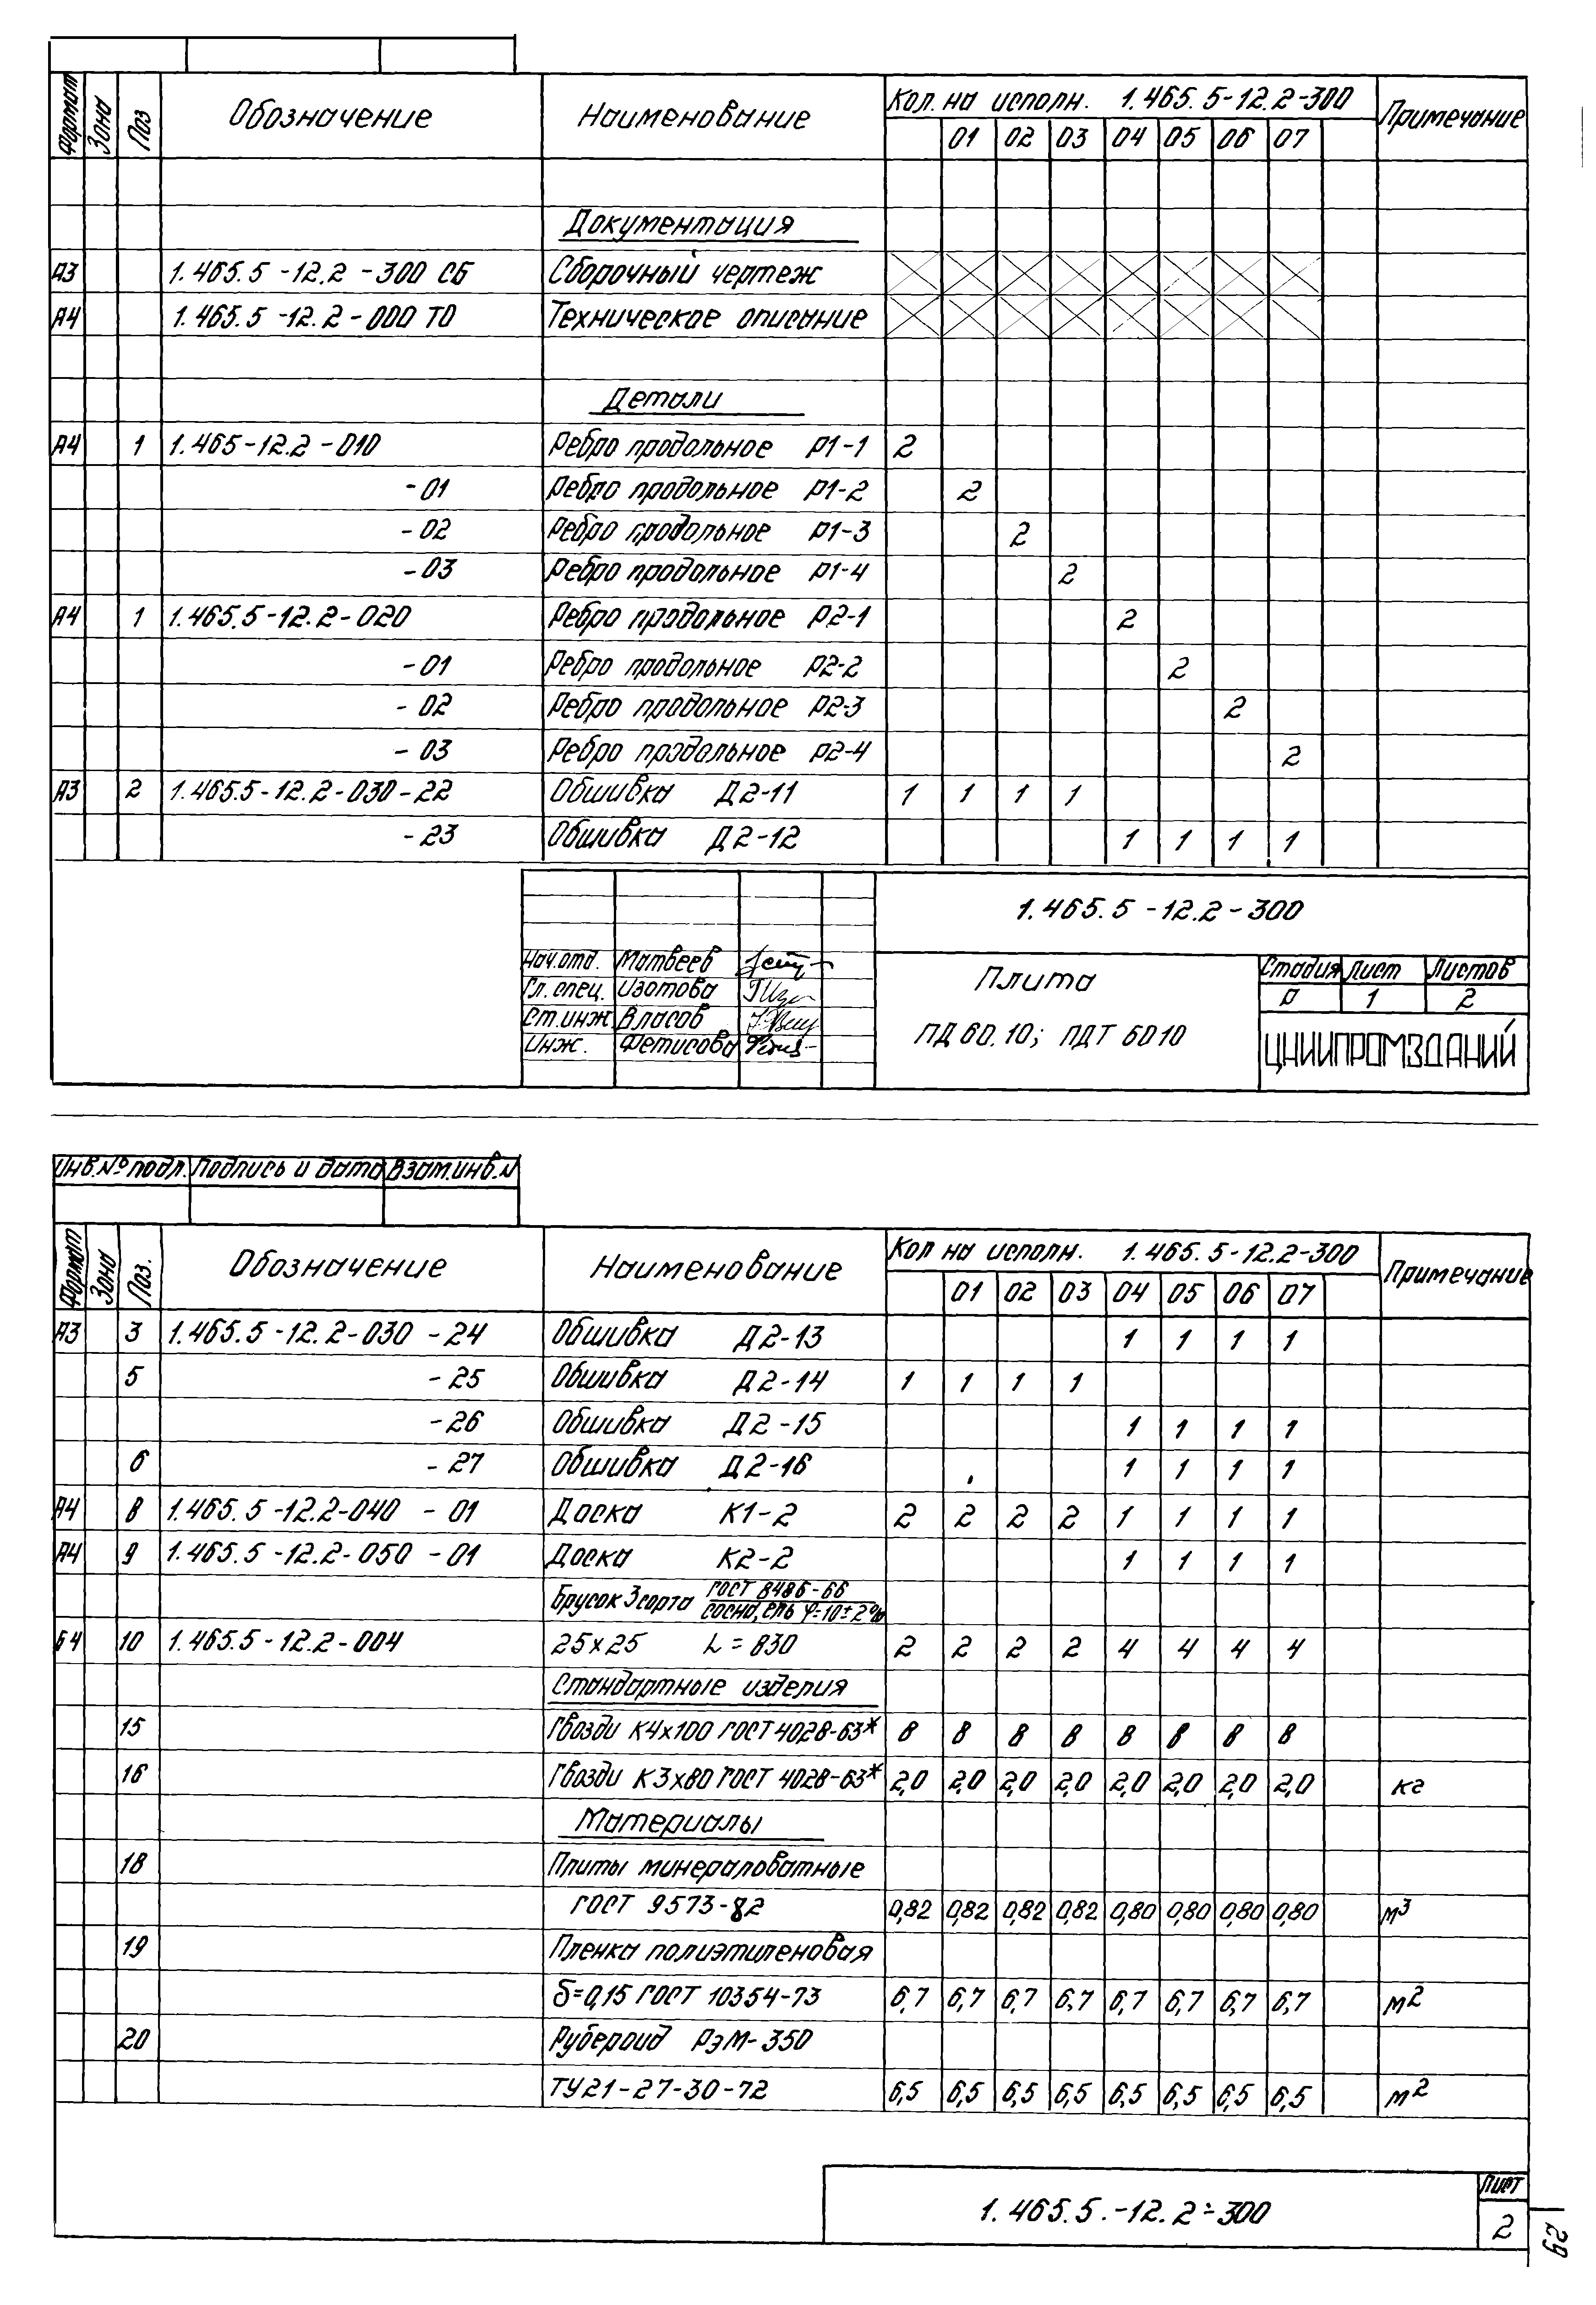 Формат Зона Поз Обозначение Наименование Кол. на исполн. 1.465.5-12.2-300 Примечание
01 02 03 04 05 06 07
Документация
А3 1.465.5-12.2-300 СБ Сборочный чертеж
А4 1.465.5-12.2-000 ТО Техническое описание
Детали
А4 1 1.465-12.2-010 Ребро продольное Р1-1 2
-01 Ребро продольное Р1-2 2
-02 Ребро продольное Р1-3 2
-03 Ребро продольное Р1-4 2
А4 1 1.465.5-12.2-020 Ребро продольное Р2-1 2
-01 Ребро продольное Р2-2 2
-02 Ребро продольное Р2-3 2
-03 Ребро продольное Р2-4 2
А3 2 1.465.5-12.2-030-22 Обшивка Д2-11 1 1 1 1
-23 Обшивка Д2-12 1 1 1 1
1.465.5-12.2-300
Нач.отд. Матвеев
Гл. спец. Изотова
Ст.инж Власов
Инж. Фетисова
Плита
ПД 60.10; ПДТ 6010
Стадия Лист Листов
Р 1 2
ЦНИИПРОМЗДАНИЙ
Инв.№ подл. Подпись и дата Взам.инв.N
Формат Зона Поз. Обозначение Наименование Кол на исполн. 1.465.5-12.2-300 Примечание
01 02 03 04 05 06 07
А3 3 1.465.5-12.2-030-24 Обшивка Д2-13 1 1 1 1
5 -25 Обшивка Д2-14 1 1 1 1
-26 Обшивка Д2-15 1 1 1 1
6 -27 Обшивка Д2-16 1 1 1 1
А4 8 1.465.5-12.2-040 -01 Доска К1-2 2 2 2 2 1 1 1 1
А4 9 1.465.5-12.2-050 -01 Доска К2-2 1 1 1 1
Брусок 3 сорта ГОСТ 8486-66
сосна, ель φ=10±2%
Б4 10 1.465.5-12.2-004 25х25 L=830 2 2 2 2 4 4 4 4
Стандартные изделия
15 Гвозди К4х100 ГОСТ 4028-63* 8 8 8 8 8 8 8 8
16 Гвозди К3х80 ГОСТ 4028-63* 2,0 2,0 2,0 2,0 2,0 2,0 2,0 2,0 кг
Материалы
18 Плиты минераловатные
ГОСТ 9573-82 0,82 0,82 0,82 0,82 0,80 0,80 0,80 0,80 м³
19 Пленка полиэтиленовая
δ=0,15 ГОСТ 10354-73 6,7 6,7 6,7 6,7 6,7 6,7 6,7 6,7 м²
20 Рубероид РэМ-350
ТУ21-27-30-72 6,5 6,5 6,5 6,5 6,5 6,5 6,5 6,5 м²
1.465.5.-12.2-300
Лист
2
29